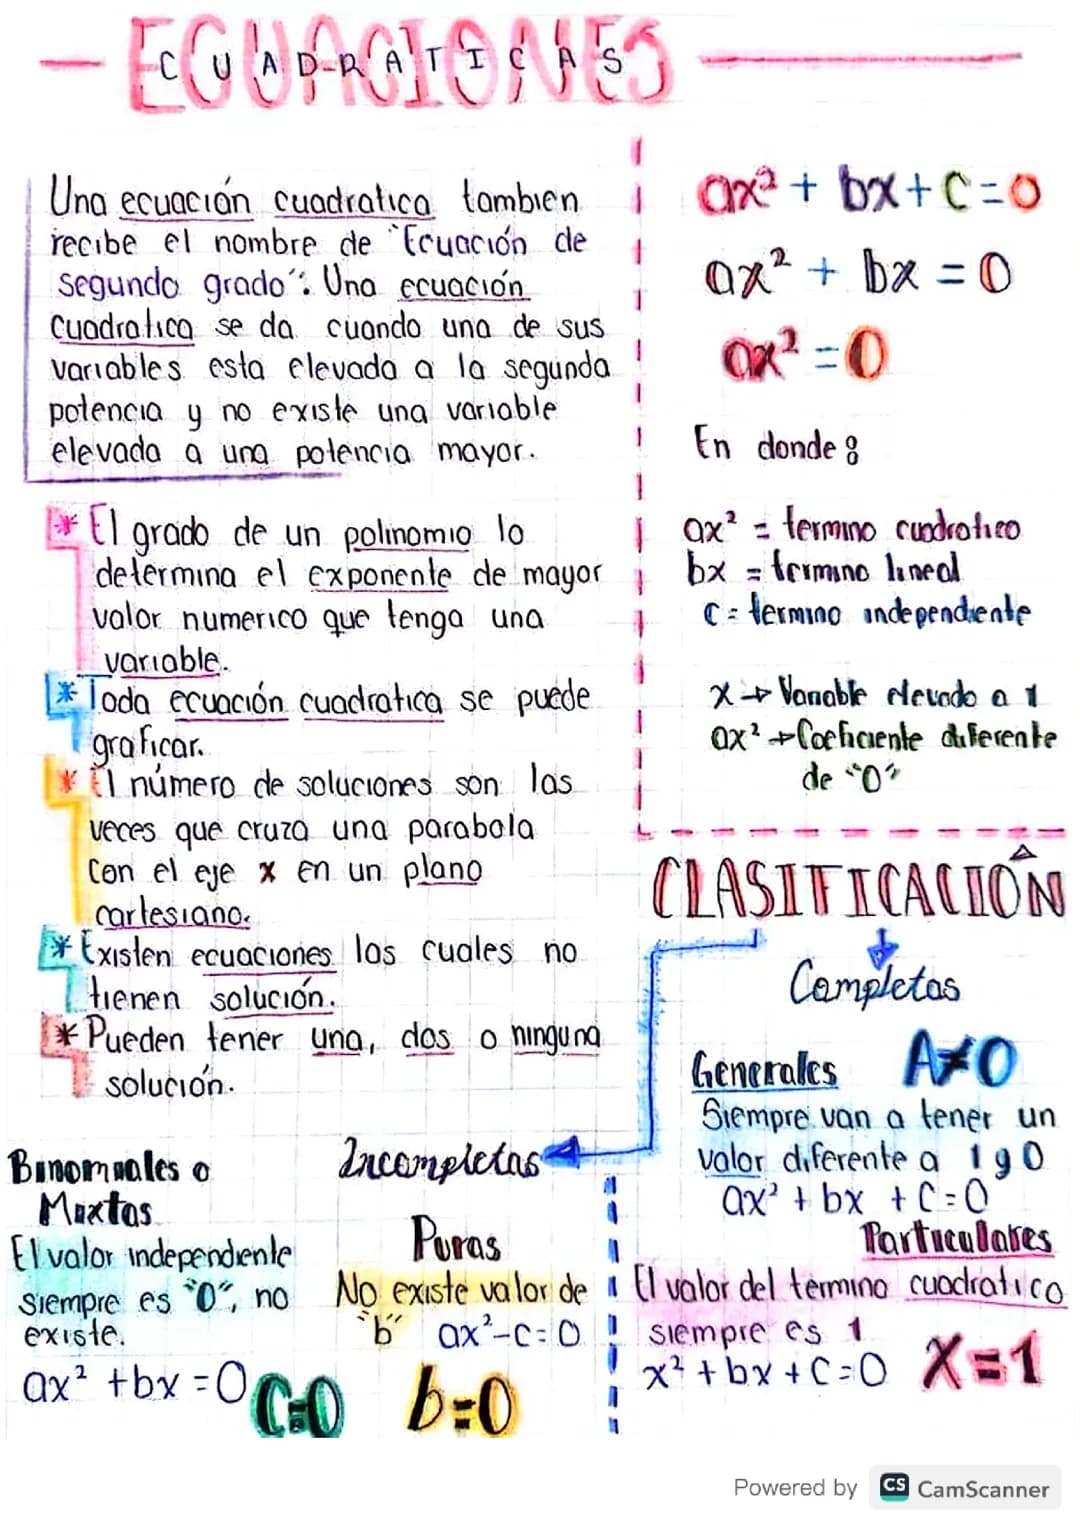 ECUACIONES
CUADRATICAS
Una ecuación cuadratica tambien
recibe el nombre de "Ecuación de
segundo grado". Una ecuación
cuadratica se da cuando una de sus
variables esta elevada a la segunda
potencia y no existe una variable
elevada a una potencia mayor.
* El grado de un polinomio lo
determina el exponente de mayor
valor numerico que tenga una
variable.
* Toda ecuación cuadratica se puede
graficar.
* El número de soluciones son las
veces que cruza una parabola
con el eje x en un plano
cartesiano.
* Existen ecuaciones las cuales no
tienen solución.
* Pueden tener una, dos o ninguna
solución.
ax² + bx + c = 0
ax² + bx = 0
ax² = 0
En donde:
ax² = termino cuadratico
bx = termino lineal
c = termino independiente
x → Variable elevada a 1
ax² → Coeficiente diferente
de "0"
CLASIFICACIÓN
Completas
Generales A≠0
Siempre van a tener un
valor diferente a 1 y 0
ax² + bx + c = 0
Particulares
El valor del término cuadratico
siempre es 1
x² + bx + c = 0 X=1
Incompletas
Binomiales o
Mixtas
El valor independiente
siempre es "0", no
existe.
ax² + bx = 0 C=0
Puras
No existe valor de
"b" ax²-c=0
b=0
Powered by CS CamScanner